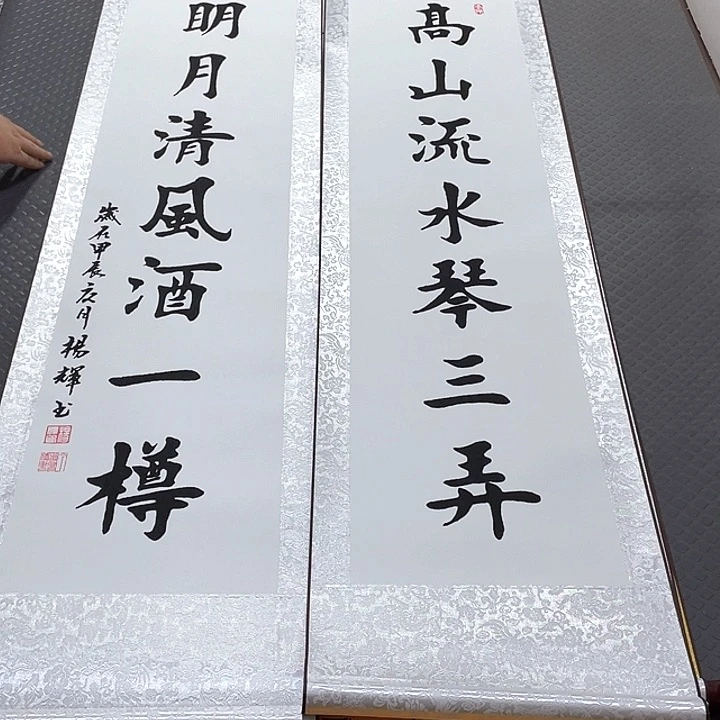 高山流水琴三弄
明月清風酒一樽
歲在甲辰之月楊輝书